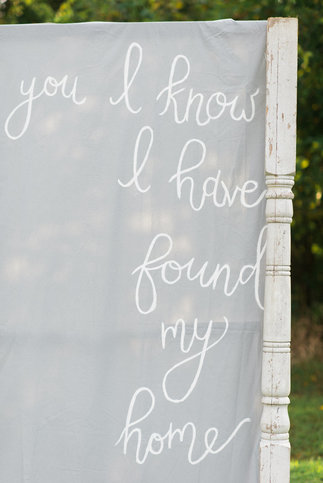 you I know
I have
found
my
home